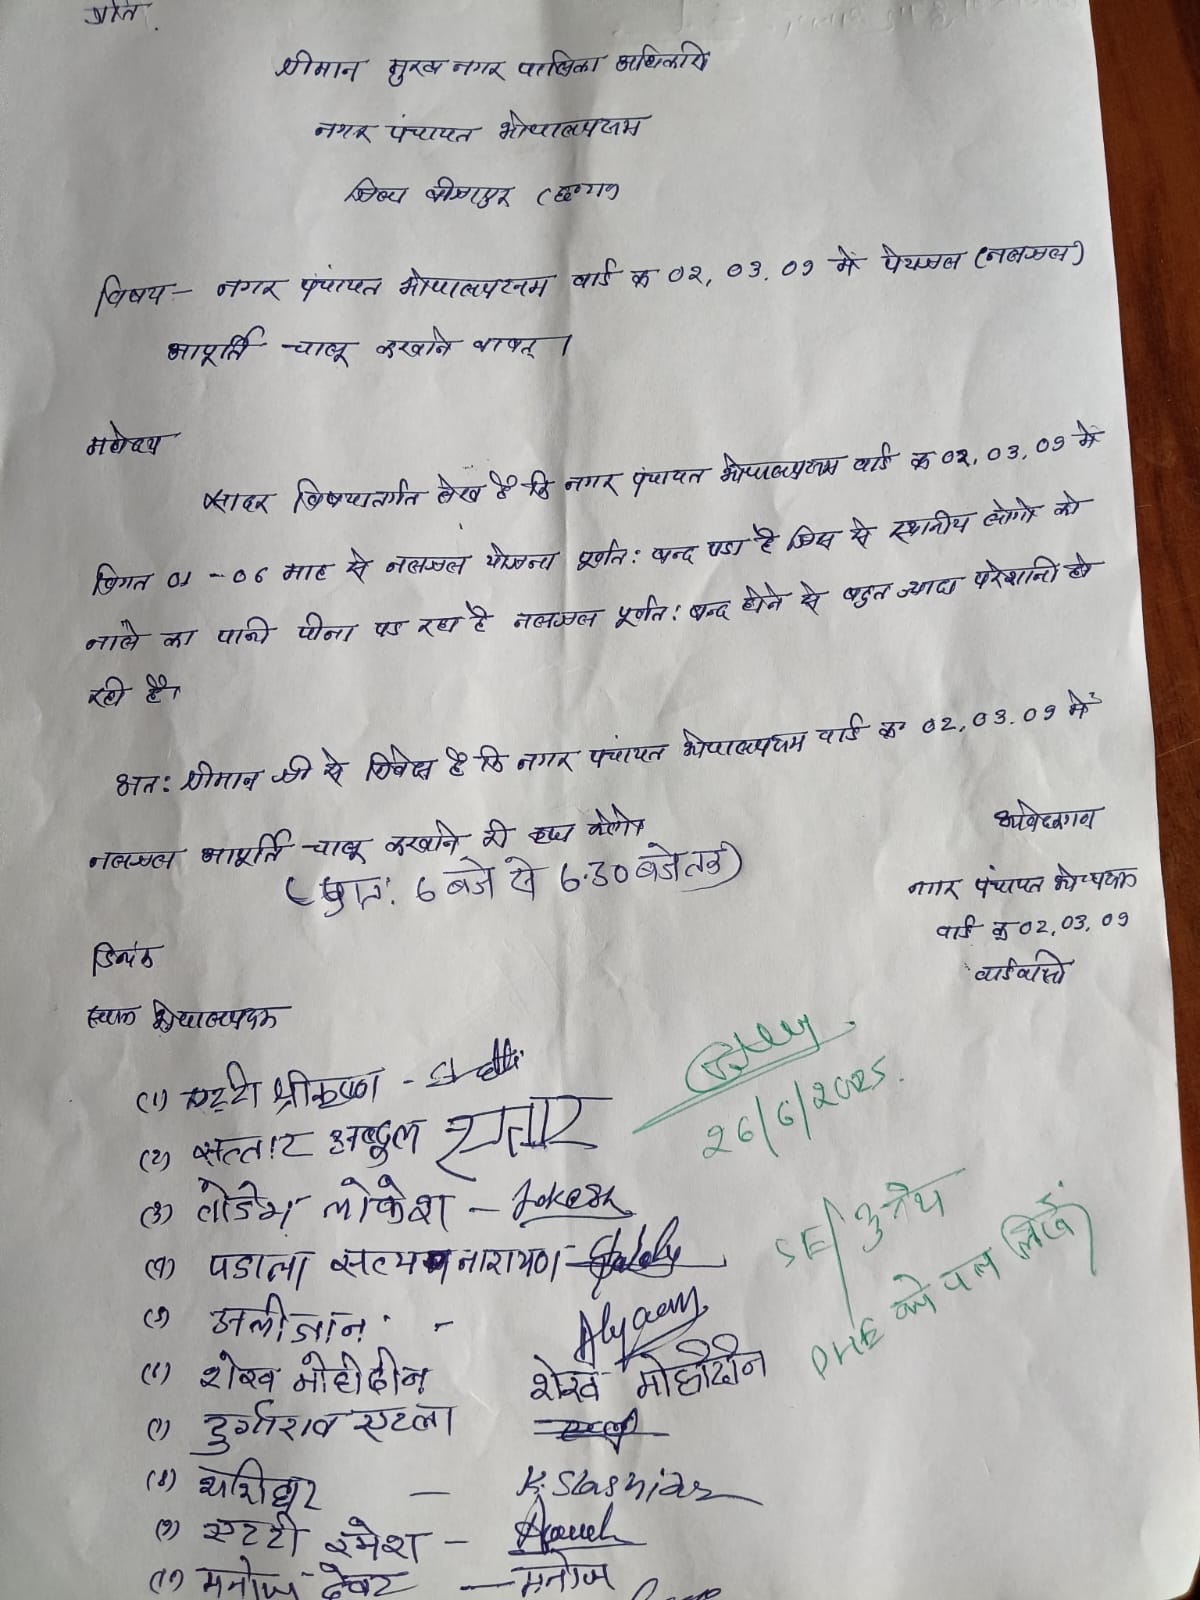 प्रति,
श्रीमान मुख्य नगर पालिका अधिकारी
नगर पंचायत भोपालपटनम
जिला बीजापुर (छ०ग०)
विषय - नगर पंचायत भोपालपटनम वार्ड क्र 02, 03, 09 में पेयजल (नलजल)
आपूर्ति चालू करवाने बाबत् ।
महोदय
सादर विषयांतर्गत लेख है कि नगर पंचायत भोपालपटनम वार्ड क्र 02, 03, 09 में
विगत 01 - 06 माह से नलजल योजना पूर्णत: बन्द पडा है जिस से स्थानीय लोगो को
नाले का पानी पीना पड रहा है नलजल पूर्णत: बन्द होने से बहुत ज्यादा परेशानी हो
रही है।
अत: श्रीमान जी से निवेदन है कि नगर पंचायत भोपालपटनम वार्ड क्र 02, 03, 09 में
नलजल आपूर्ति चालू करवाने की कृपा करेंगे।
(प्रात: 6 बजे से 6.30 बजे तक)
आवेदकगण
नगर पंचायत भोपालपटनम
वार्ड क्र 02, 03, 09
वार्डवासी
दिनांक
स्थान भोपालपटनम
(1) एट्टी श्रीकृष्ण -
(2) सत्तार अब्दुल सत्तार
(3) लोकेश - Lokesh
(4) पडाला सत्यनारायण -
(5) अलीजान -
(6) शेख मोहीदीन शेख मोहीदीन
(7) दुर्गाराव एटला
(8) शशिधर - K. Shashidar
(9) एटटी रमेश -
(10) मनोज देवर - मनोज
26/6/2025.
SE/
PHE को पत्र लिखें